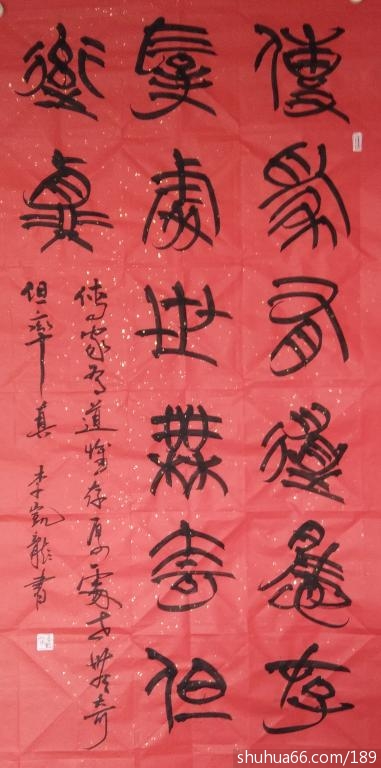 傳家有道惟存
厚處世無奇但
率真
傳家有道惟存厚處世無奇
但率真 李凱龍書
shuhua66.com/189